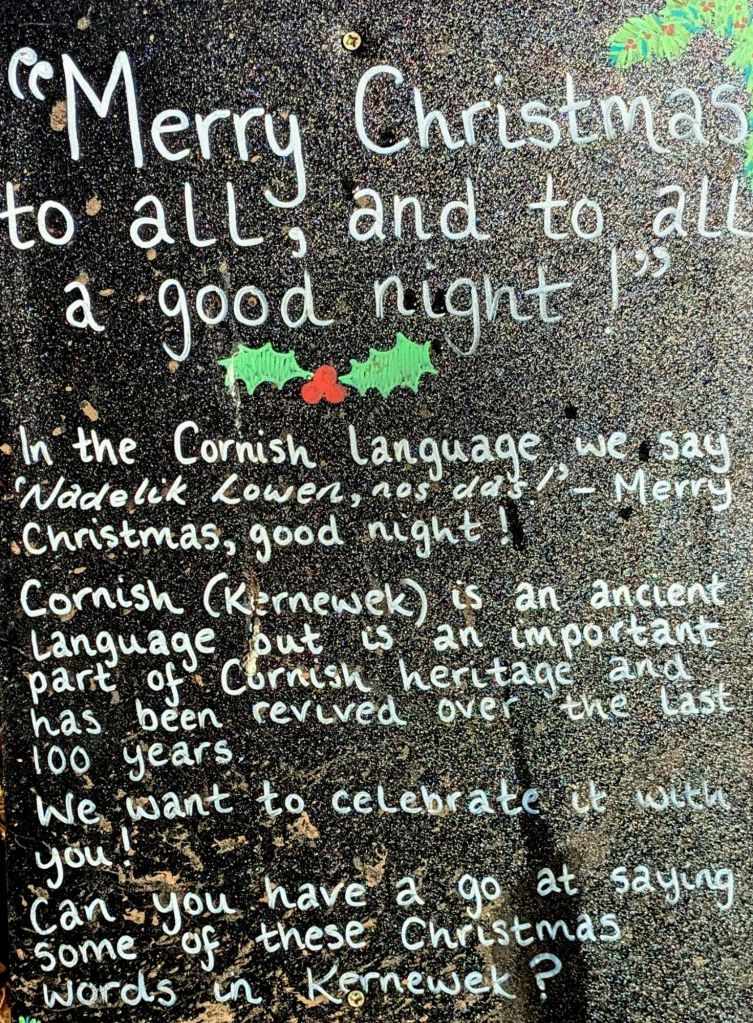 "Merry Christmas
to all, and to all
a good night!"
In the Cornish language we say
'Nadelik Lowen, nos das!' - Merry
Christmas, good night!
Cornish (Kernewek) is an ancient
language but is an important
part of Cornish heritage and
has been revived over the last
100 years.
We want to celebrate it with
you!
Can you have a go at saying
some of these Christmas
words in Kernewek?